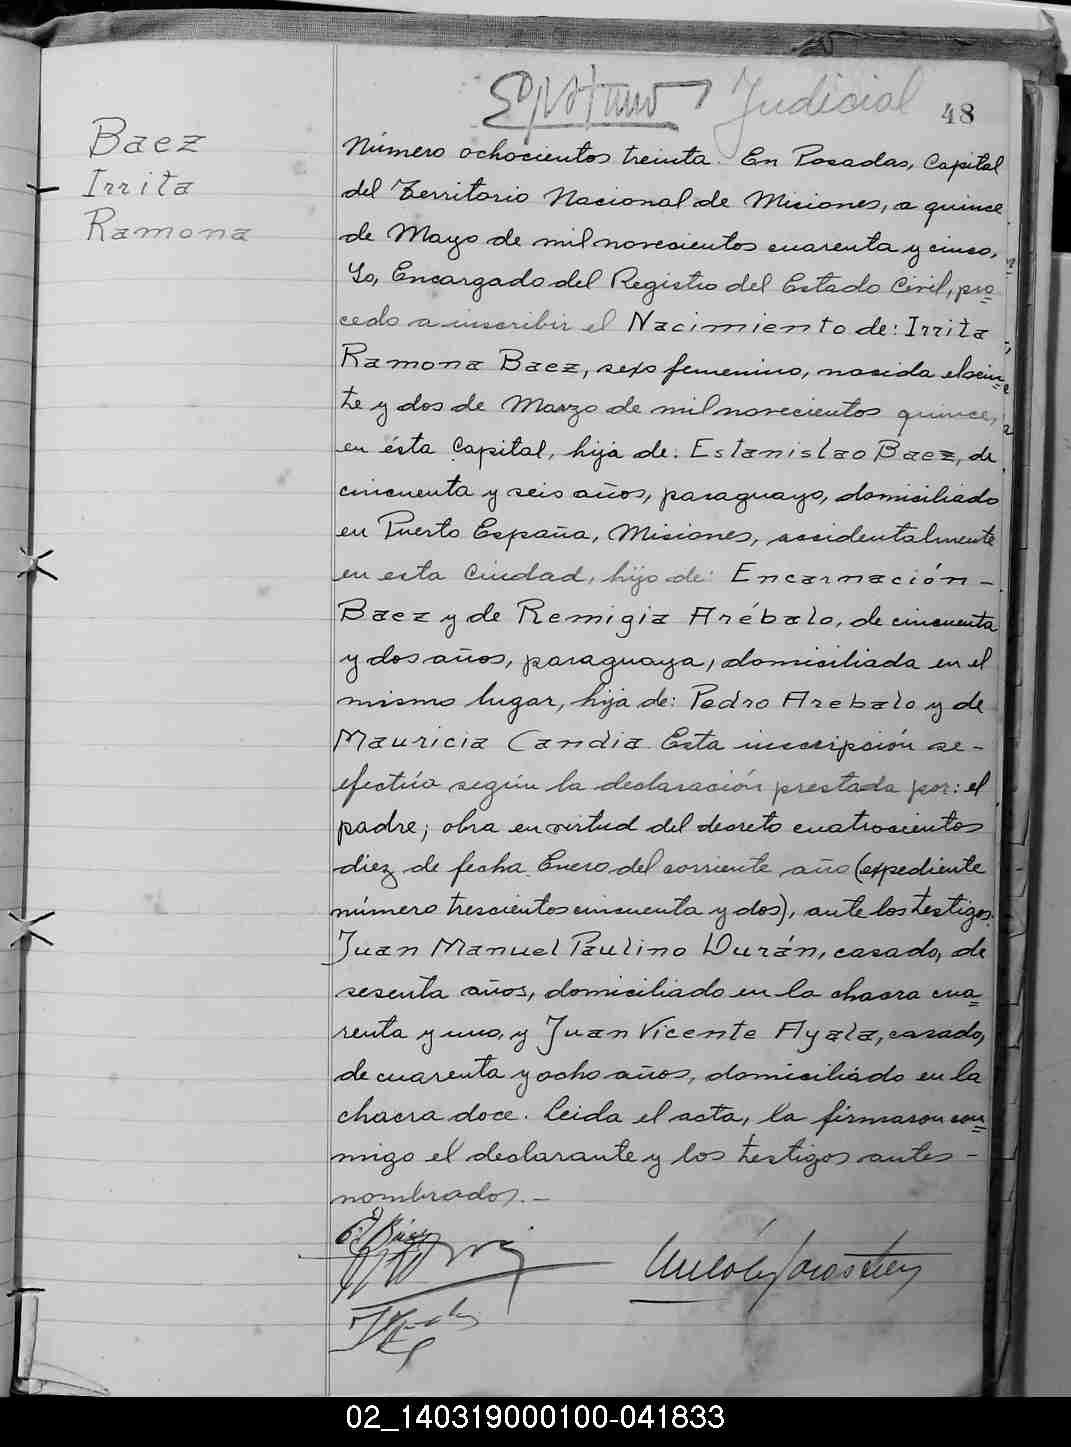 Judicial
48
Baez
Irrita
Ramona
Número ochocientos treinta. En Posadas, Capital
del Territorio Nacional de Misiones, a quince
de Mayo de mil novecientos cuarenta y cinco,
Yo, Encargado del Registro del Estado Civil, pro=
cedo a inscribir el Nacimiento de: Irrita
Ramona Baez, sexo femenino, nacida el vein=
te y dos de Marzo de mil novecientos quince,
en ésta Capital, hija de: Estanislao Baez, de
cincuenta y seis años, paraguayo, domiciliado
en Puerto España, Misiones, accidentalmente
en esta Ciudad, hijo de: Encarnación -
Baez y de Remigia Arébalo, de cincuenta
y dos años, paraguaya, domiciliada en el
mismo lugar, hija de: Pedro Arebalo y de
Mauricia Candia. Esta inscripción se -
efectúa según la declaración prestada por: el
padre; obra en virtud del decreto cuatrocientos
diez de fecha Enero del corriente año (expediente
número trescientos cincuenta y dos), ante los testigos
Juan Manuel Paulino Durán, casado, de
sesenta años, domiciliado en la chacra cua=
renta y uno, y Juan Vicente Ayala, casado,
de cuarenta y ocho años, domiciliado en la
chacra doce. Leida el acta, la firmaron con=
migo el declarante y los testigos antes -
nombrados. -
02_140319000100-041833